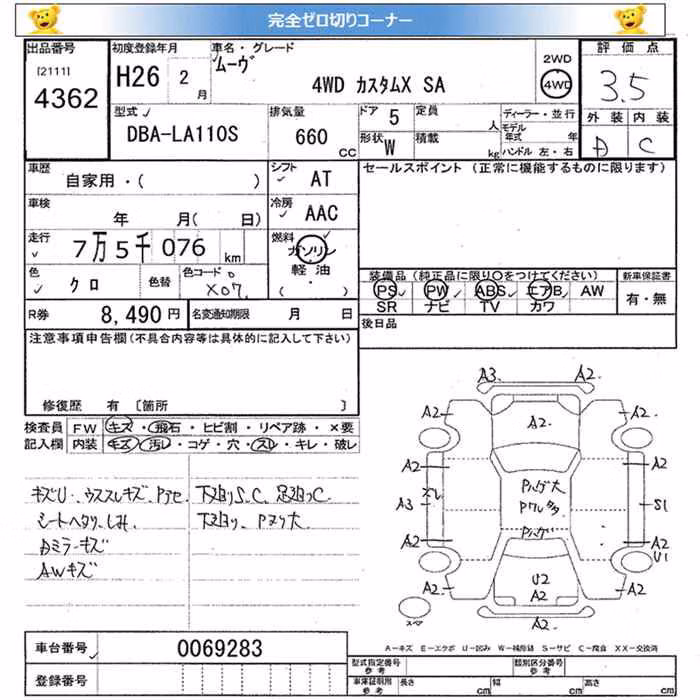 完全ゼロ切りコーナー
出品番号
[2111]
4362
初度登録年月
H26 2月
車名・グレード
ムーヴ
4WD カスタムX SA
2WD
4WD
評価点
3.5
型式
DBA-LA110S
排気量
660 CC
ドア 5
定員 人
形状 W
積載 kg
ディーラー・並行
モデル年式 年
ハンドル 左・右
外装 内装
D C
車歴
自家用・( )
シフト
AT
セールスポイント (正常に機能するものに限ります)
車検
年 月( 日)
冷房
AAC
走行
7万5千076 km
燃料
ガソリン
軽油
・( )
色
クロ
色替
色コード
X07
装備品 (純正品に限り○をつけてください)
PS PW ABS エアB AW
SR ナビ TV カワ
新車保証書
有・無
R券 8,490円
名変通知期限 月 日
後日品
注意事項申告欄(不具合内容等は具体的に記入して下さい)
修復歴 有 〔箇所 〕
検査員記入欄
FW キズ・飛石・ヒビ割・リペア跡・×要
内装 キズ・汚レ・コゲ・穴・スレ・キレ・破レ
キズU・ウススレキズ・Pアセ
シートヘタリ、しみ
Dミラーキズ
AWキズ
下廻りS.C、足廻りC
A3 A2
A2 A2 A2
A2 A2
Pハゲ大
A3 スレ
S1
Pハゲ
A2 A2
U1
U2
A2
A2 A2
A2
A-キズ E-エクボ U-凹み W-補修跡 S-サビ C-腐食 XX-交換済
車台番号 0069283
登録番号
型式指定番号 参考
類別区分番号 参考
車庫証明用 参考 長さ cm 幅 cm 高さ cm